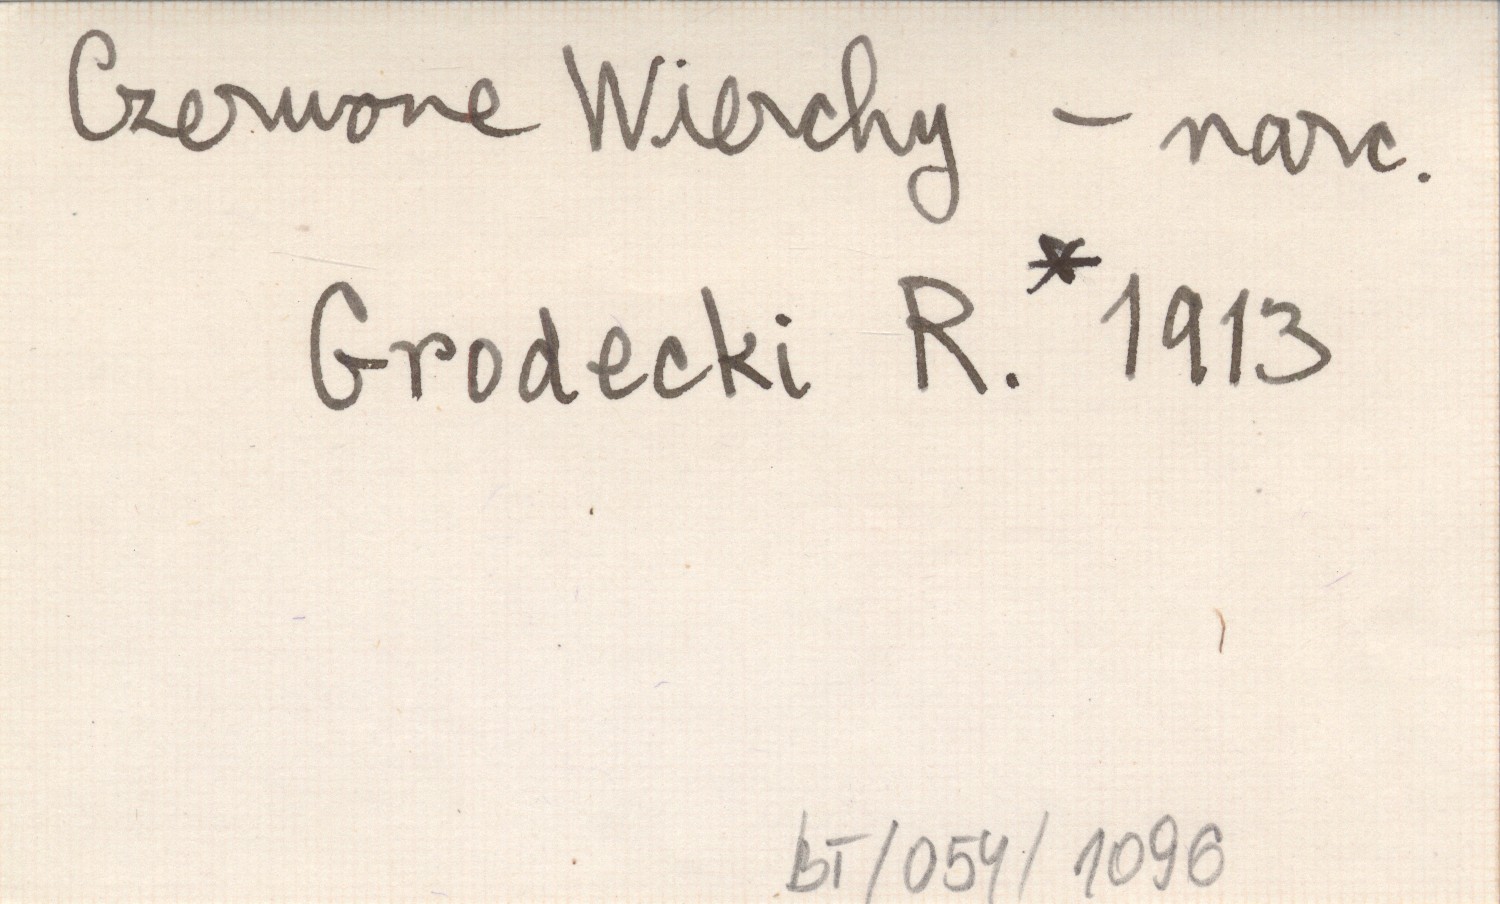 Czerwone Wierchy - narc.
Grodecki R.* 1913
BT/054/1096